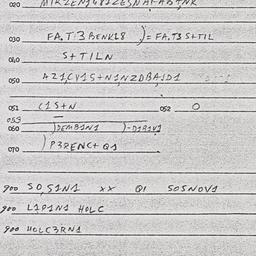 020
030 FA.T3BENKL8 )=FA.T3 S+TIL
040 S+TILN
050 AZ1,CV1S+N1NZDBAJD1
051 C1S+N 052 O
055
060 )DEMB1N1 )-D1R1V1
070 )P3RENC+Q1
900 SO,S1N1 XX Q1 SOSNOV1
900 L1P1N1 HOLC
900 HOLC3RN1